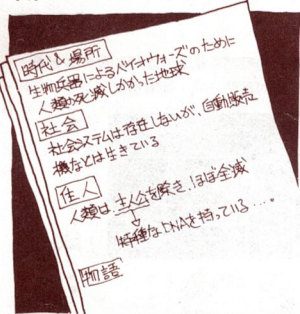 時代&場所
生物兵器によるバイオウォーズのために
人類が死滅しかかった地球
社会
社会システムは存在しないが、自動販売
機などは生きている
住人
人類は、主人公を除き、ほぼ全滅
特種なDNAを持っている……
物語